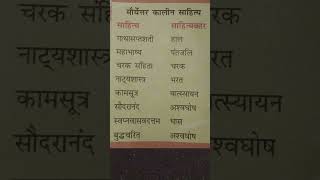 मौर्योत्तर कालीन साहित्य
साहित्य साहित्यकार
गाथासप्तशती हाल
महाभाष्य पंतजलि
चरक संहिता चरक
नाट्यशास्त्र भरत
कामसूत्र वात्स्यायन
सौंदरानंद अश्वघोष
स्वप्नवासवदत्तम भास
बुद्धचरित अश्वघोष